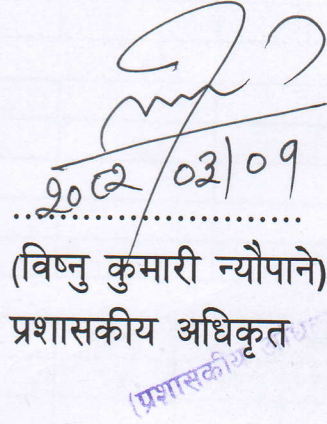 २०८२/०३/०९
..............................
(विष्नु कुमारी न्यौपाने)
प्रशासकीय अधिकृत
(प्रशासकीय